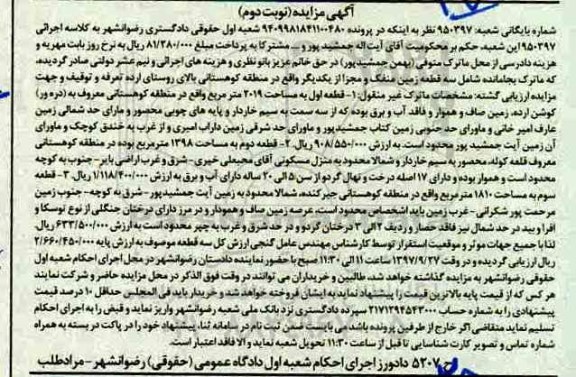 آگهی مزایده (نوبت دوم)
شماره بایگانی شعبه: ۹۵۰۳۹۷ نظر به اینکه در پرونده ۹۴۰۹۹۸۱۸۴۱۱۰۰۴۸۰ شعبه اول حقوقی دادگستری رضوانشهر به کلاسه اجرائی
۹۵۰۳۹۷ این شعبه، حکم بر محکومیت آقای آیت اله جمشید پور و ... مشترکا به پرداخت مبلغ ۸۱/۲۸۰/۰۰۰ ریال به نرخ روز بابت مهریه و
هزینه دادرسی از محل ماترک متوفی (بهمن جمشیدپور) در حق خانم عزیز بانو نظری و هزینه های اجرائی و نیم عشر دولتی صادر گردیده،
که ماترک بجامانده شامل سه قطعه زمین منفک و مجزا از یکدیگر واقع در منطقه کوهستانی بالای روستای ارده تعرفه و توقیف و جهت
مزایده ارزیابی گشته: مشخصات ماترک غیر منقول: ۱- قطعه اول به مساحت ۲۰۱۹ متر مربع واقع در منطقه کوهستانی معروف به (دره ور)
کوشن ارده، زمین صاف و هموار و فاقد آب و برق بوده که از سه سمت به سیم خاردار و پایه های چوبی محصور و مارای حد شمالی زمین
عارف امیر خانی و ماورای حد جنوبی زمین کتاب جمشیدپور و ماورای حد شرقی زمین داراب امیری و از غرب به خندق کوچک و ماورای
آن زمین آیت جمشید پور محدود است. به ارزش ۹۰۸/۵۵۰/۰۰۰ ریال. ۲- قطعه دوم به مساحت ۱۳۹۸ مترمربع بوده در منطقه کوهستانی
معروف قلعه کوله، محصور به سیم خاردار و شمالا محدود به منزل مسکونی آقای محبعلی خیری- شرق و غرب اراضی بایر- جنوب به کوچه
محدود است و هموار بوده و دارای ۱۷ اصله درخت و نهال گردو از سن ۵ الی ۲۰ ساله دارای آب و برق به ارزش ۱/۱۱۸/۴۰۰/۰۰۰ ریال. ۳- قطعه
سوم به مساحت ۱۸۱۰ مترمربع واقع در منطقه کوهستانی جیر کنده، شمالا محدود به زمین آیت جمشیدپور- شرق به کوچه- جنوب زمین
مرحمت پور شکرانی- غرب زمین باید اشخاص محدود است، عرصه زمین صاف و هموار و در مرز دارای درختان جنگلی از نوع توسکا و
افرا و بید در حد شمال نیز فاقد حصار و ردیف ۲ الی ۳ درختان گردو و در حد شرق و غرب به چپر محدود است به ارزش ۶۳۳/۵۰۰/۰۰۰ ریال،
لذا با جمیع جهات موثر و موقعیت استقرار توسط کارشناس مهندس عامل گنجی ارزش کل سه قطعه موصوف به ارزش پایه ۲/۶۶۰/۴۵۰/۰۰۰
ریال ارزیابی گردیده و در وقت ۱۳۹۷/۹/۲۷ ساعت ۱۱ الی ۱۱:۳۰ صبح با حضور نماینده دادستان رضوانشهر در محل اجرای احکام شعبه اول
حقوقی رضوانشهر به مزایده گذاشته خواهد شد، طالبین و خریداران می توانند در وقت فوق الذکر در محل مزایده حاضر و شرکت نمایند
هر کس که از قیمت پایه بالاترین قیمت را پیشنهاد نماید به ایشان فروخته خواهد شد و خریدار باید فی المجلس حداقل ۱۰ درصد قیمت
پیشنهادی را به شماره حساب ۲۱۷۱۲۹۴۵۴۳۰۰۰ سپرده دادگستری نزد بانک ملی شعبه رضوانشهر واریز نماید و قبض را به اجرای احکام
تسلیم نماید متقاضی اگر خارج از طرفین پرونده باشد می بایست ضمن ثبت نام در سامانه ثنا، پیشنهاد خود را در پاکت در بسته به همراه
شماره تماس و تصویر کارت شناسایی تا قبل از ساعت ۱۱:۳۰ تحویل شعبه نماید والا فاقد اعتبار است.
ح ۵۲۰۷ دادورز اجرای احکام شعبه اول دادگاه عمومی (حقوقی) رضوانشهر- مرادطلب